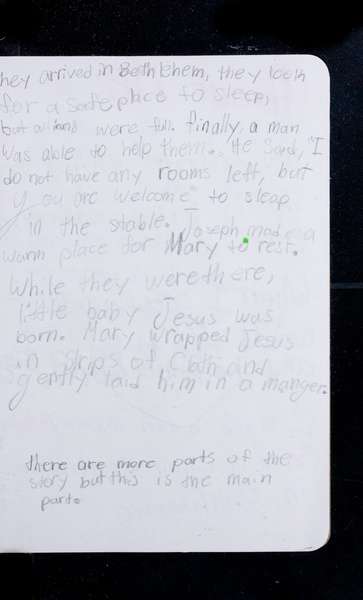 hey arrived in Bethlehem, they look
for a safe place to sleep,
but all inns were full. finally, a man
was able to help them. He said, "I
do not have any rooms left, but
you are welcome" to sleap
in the stable. Joseph made a
warm place for Mary to rest.
While they were there,
little baby Jesus was
born. Mary wrapped Jesus
in strips of Cloth and
gently laid him in a manger.
there are more parts of the
story but this is the main
part.